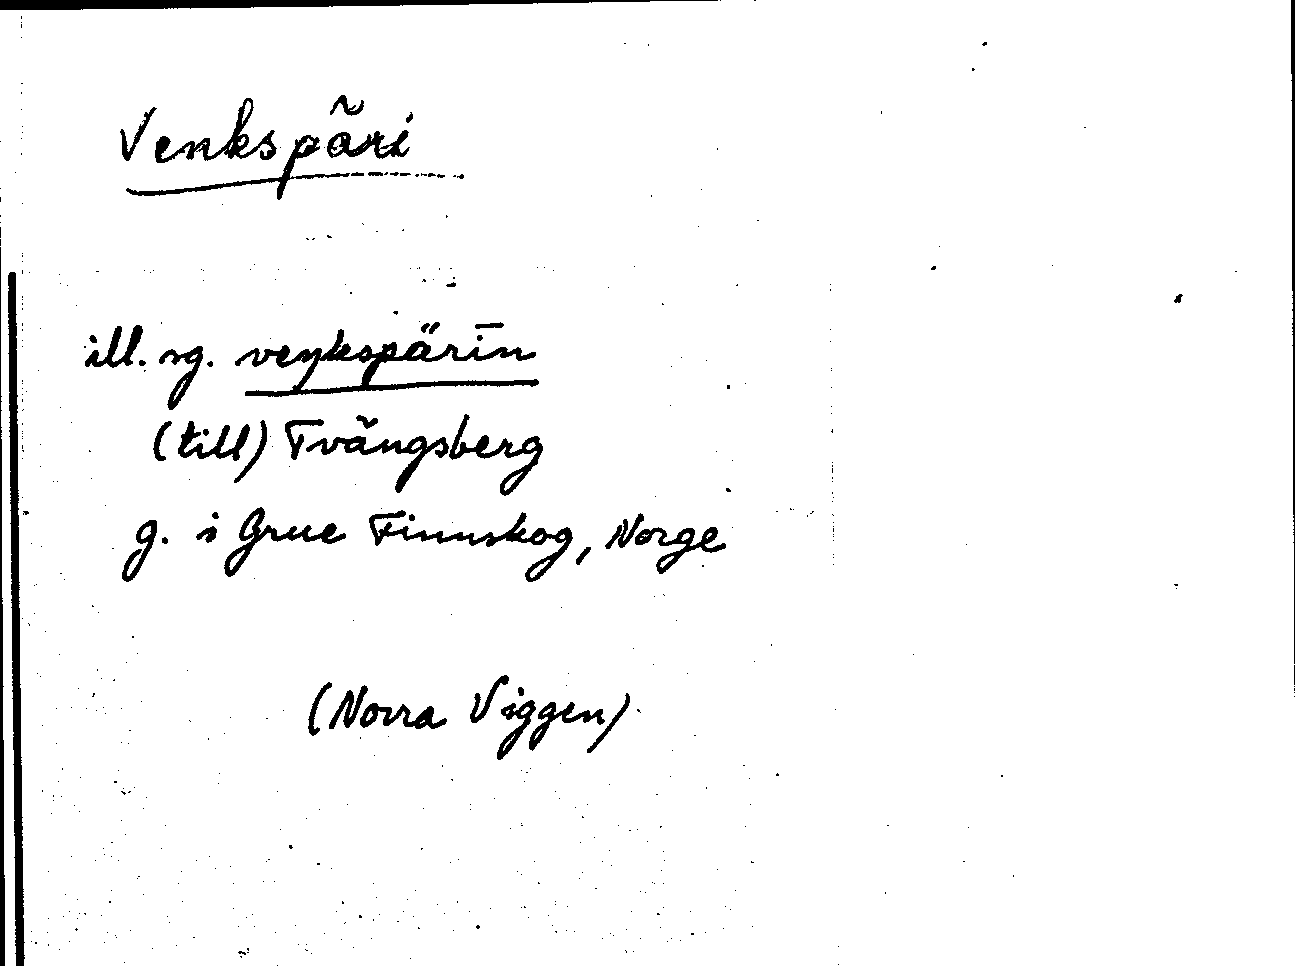 Venkspäri
ill. sg. veŋkspärīn
(till) Tvängsberg
g. i Grue Finnskog, Norge
(Norra Viggen)